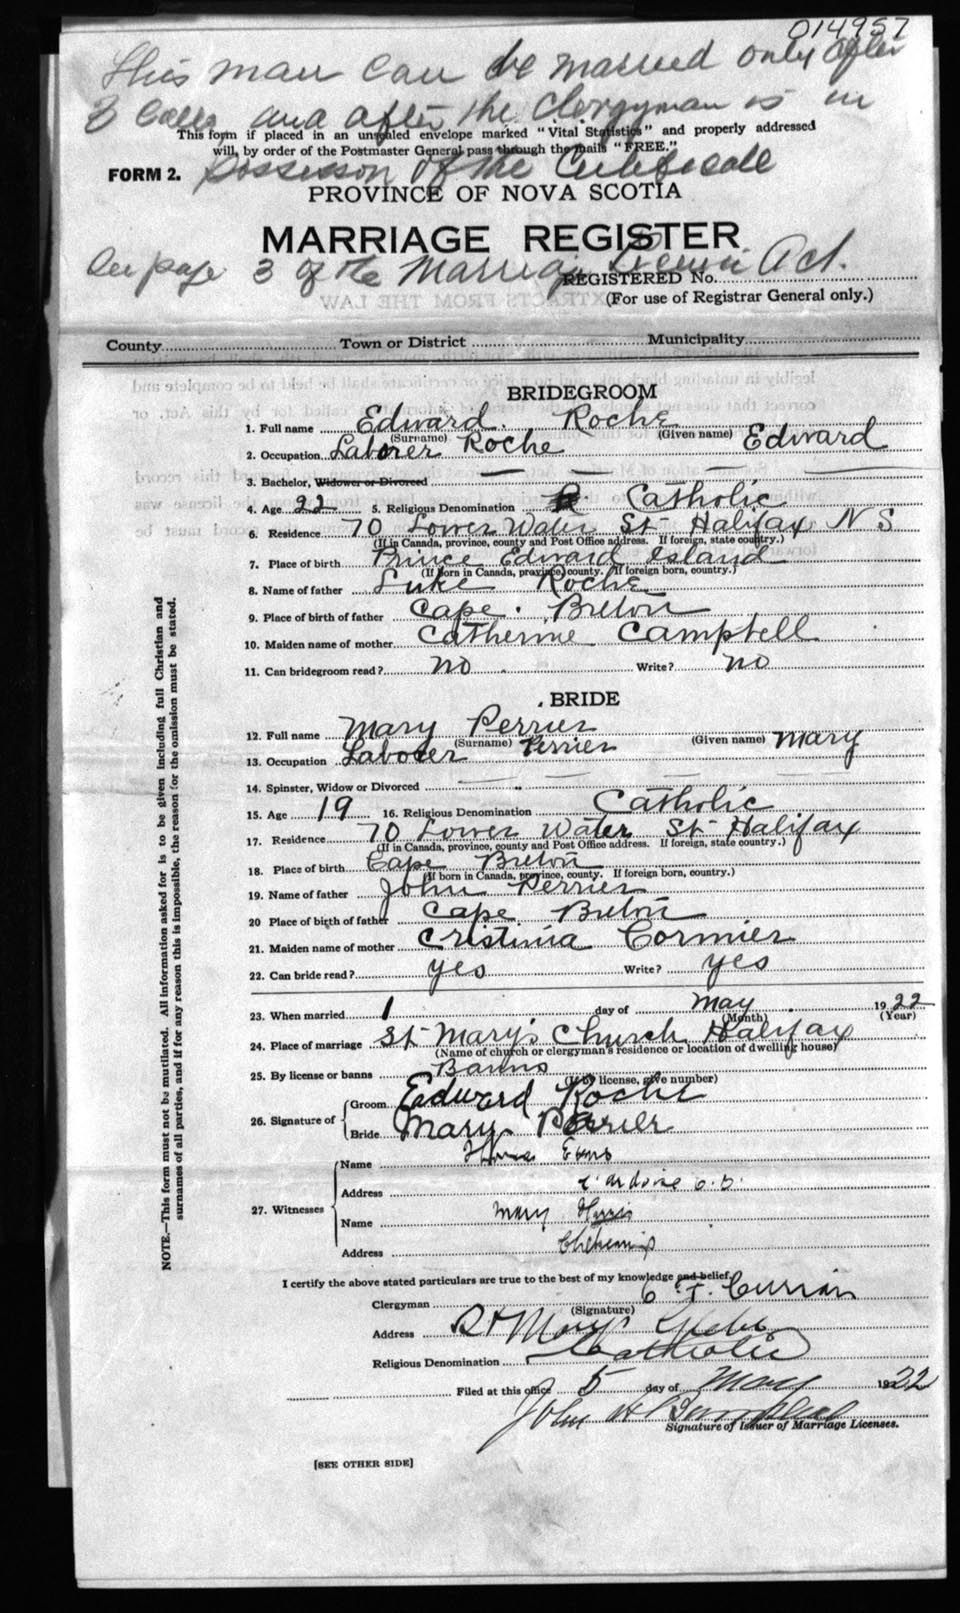 014957
This man can be married only after
3 calls and after the clergyman is in
This form if placed in an unsealed envelope marked "Vital Statistics" and properly addressed
will, by order of the Postmaster General pass through the mails "FREE."
possession of the Certificate
FORM 2.
PROVINCE OF NOVA SCOTIA
MARRIAGE REGISTER
on page 3 of the Marriage License Act.
REGISTERED No.
(For use of Registrar General only.)
County Town or District Municipality
BRIDEGROOM
1. Full name Edward. Roche
(Surname) Roche (Given name) Edward
2. Occupation Laborer
3. Bachelor, Widower or Divorced
4. Age 22 5. Religious Denomination Catholic
6. Residence 70 Lower Water St Halifax N S
(If in Canada, province, county and Post Office address. If foreign, state country.)
7. Place of birth Prince Edward Island
(If born in Canada, province, county. If foreign born, country.)
8. Name of father Luke Roche
9. Place of birth of father Cape Breton
10. Maiden name of mother Catherine Campbell
11. Can bridegroom read? no Write? no
BRIDE
12. Full name Mary Perrier
(Surname) Perrier (Given name) Mary
13. Occupation Laborer
14. Spinster, Widow or Divorced
15. Age 19 16. Religious Denomination Catholic
17. Residence 70 Lower Water St Halifax
(If in Canada, province, county and Post Office address. If foreign, state country.)
18. Place of birth Cape Breton
(If born in Canada, province, county. If foreign born, country.)
19. Name of father John Perrier
20 Place of birth of father Cape Breton
21. Maiden name of mother Cristinia Cormier
22. Can bride read? yes Write? yes
23. When married 1 day of May 1922
(Month) (Year)
24. Place of marriage St Mary's Church, Halifax
(Name of church or clergyman's residence or location of dwelling house)
25. By license or banns Banns
(If by license, give number)
26. Signature of Groom Edward Roche
Bride Mary Perrier
27. Witnesses
Name Evans
Address
Name Mary
Address
I certify the above stated particulars are true to the best of my knowledge and belief.
Clergyman C. F. Curran
(Signature)
Address St Mary's Glebe
Religious Denomination Catholic
Filed at this office 5 day of May 1922
John H
Signature of Issuer of Marriage Licenses.
[SEE OTHER SIDE]
NOTE.—This form must not be mutilated. All information asked for is to be given including full Christian and
surnames of all parties, and if for any reason this is impossible, the reason for the omission must be stated.